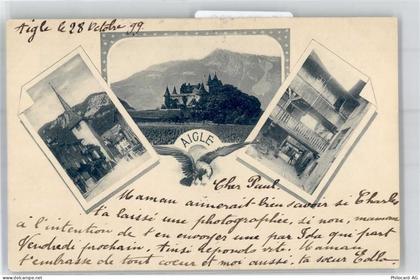 Aigle le 28 Octobre 99.
AIGLE
Cher Paul,
Maman aimerait bien savoir si Charles
t'a laissé une photographie, si non, maman
à l'intention de t'en envoyer une par Ida qui part
Vendredi prochain, Ainsi reponds vite. Maman
t'embrasse de tout coeur et moi aussi, ta soeur